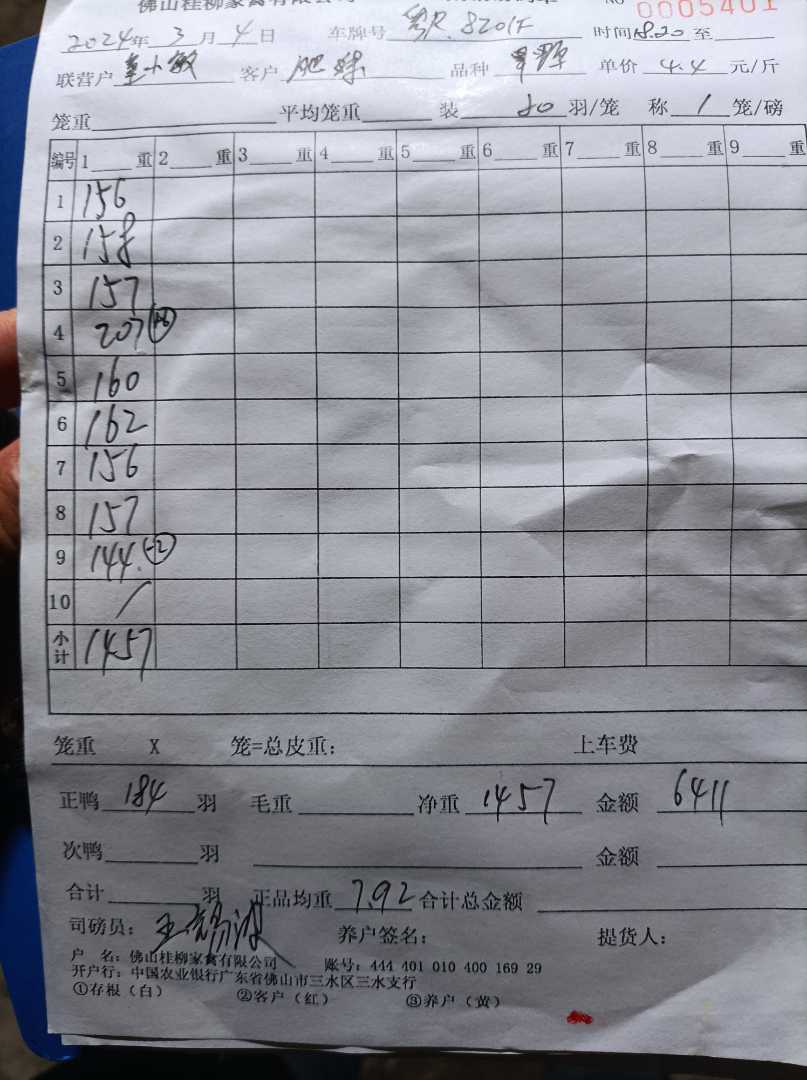 佛山桂柳家禽有限公司 NO 0005401
2024年3月4日 车牌号 粤R.8201F 时间18.20至
联营户 董小敏 客户 肥妹 品种 单价 4.4 元/斤
笼重 平均笼重 装 20 羽/笼 称 1 笼/磅
编号 1 重 2 重 3 重 4 重 5 重 6 重 7 重 8 重 9 重
1 156
2 158
3 157
4 207
5 160
6 162
7 156
8 157
9 144. (-2)
10 /
小计 1457
笼重 X 笼=总皮重: 上车费
正鸭 184 羽 毛重 净重 1457 金额 6411
次鸭 羽 金额
合计 羽 正品均重 7.92 合计总金额
司磅员: 王锡波 养户签名: 提货人:
户 名: 佛山桂柳家禽有限公司 账号: 444 401 010 400 169 29
开户行: 中国农业银行广东省佛山市三水区三水支行
①存根(白) ②客户(红) ③养户(黄)